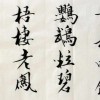 鸚鵡粒碧
梧棲老鳳